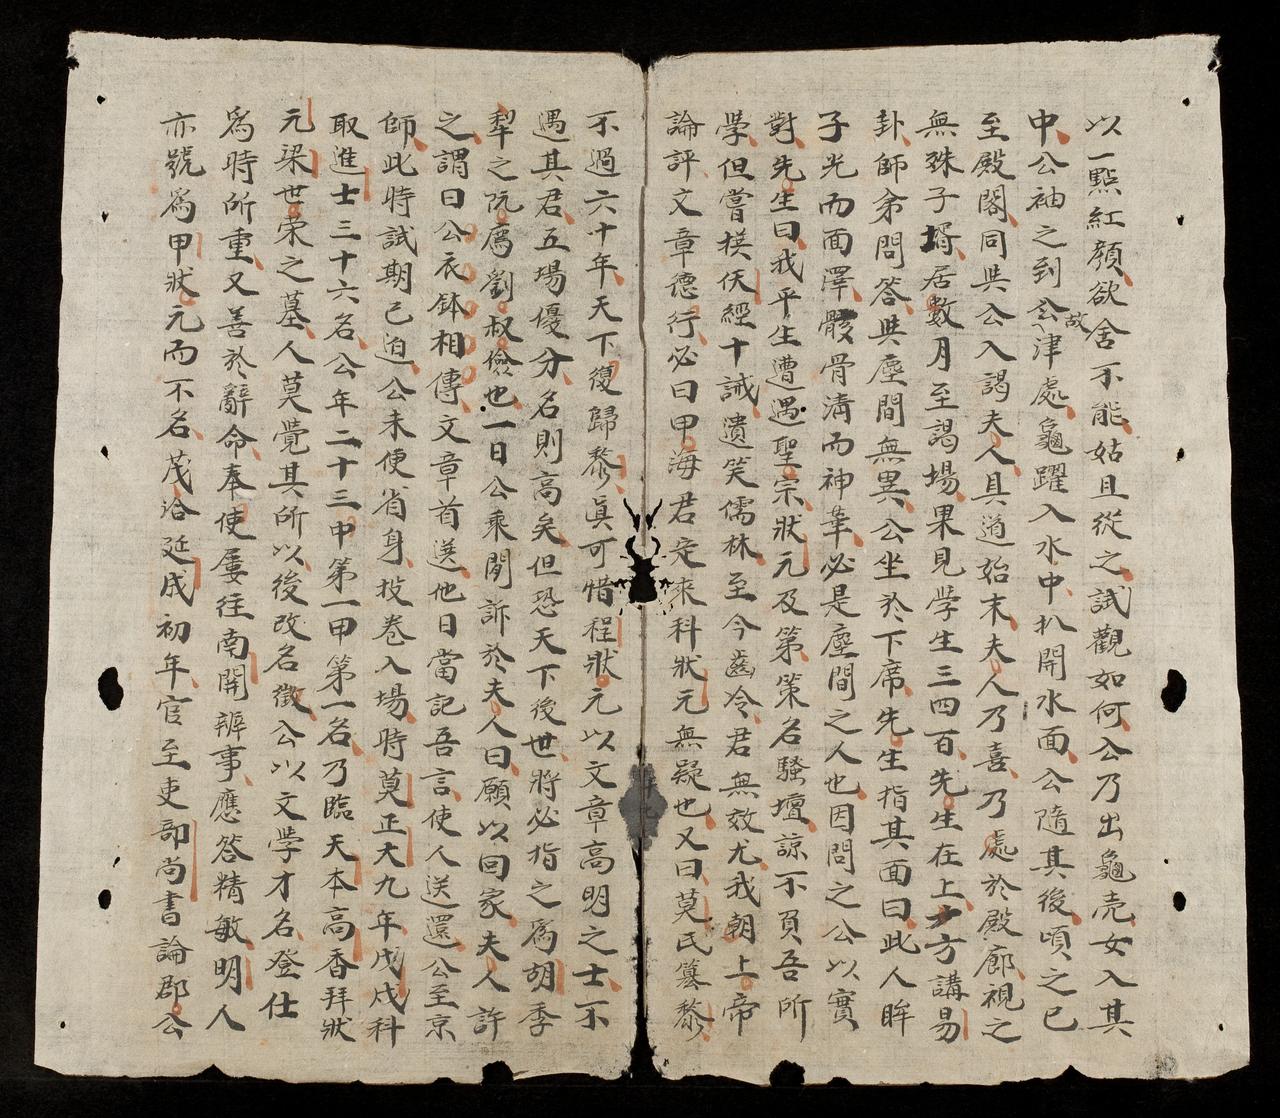 以一㸃紅顔欲舍不能姑且從之試觀如何公乃出龜壳女入其
中公袖之到公故津處龜躍入水中扒開水面公隨其後頃之已
至殿閣同與公入謁夫人具道始末夫人乃喜乃處於殿廊視之
無殊子壻居數月至謁場果見学生三四百先生在上方講易
卦師弟問答與塵間無異公坐於下席先生指其面曰此人眸
子光而面澤骸骨淸而神華必是塵間之人也因問之公以實
對先生曰我平生遭遇聖宗狀元及第策名騷壇諒不負吾所
学但嘗撰仸經十誡遺笑儒林至今齒冷君無效尤我朝上帝
論評文章德行必曰甲海君定來科狀元無疑也又曰莫氏簒黎
不過六十年天下復歸黎眞可惜程狀元以文章高明之士不
遇其君五場優分名則高矣但恐天下後世將必指之爲胡季
犁之阮廌劉叔儉也一日公乘閒訴於夫人曰願以回家夫人許
之謂曰公衣鉢相傳文章首選他日當記吾言使人送還公至京
師此時試期已迫公未使省身投卷入場時莫正大九年戊戌科
取進士三十六名公年二十三中第一甲第一名乃臨天本高香拜狀
元梁世荣之墓人莫覺其所以後改名徵公以文學才名登仕
爲時所重又善於辭命奉使屢往南開辨事應答精敏明人
亦號爲甲狀元而不名茂洽延成初年官至吏部尚書論郡公